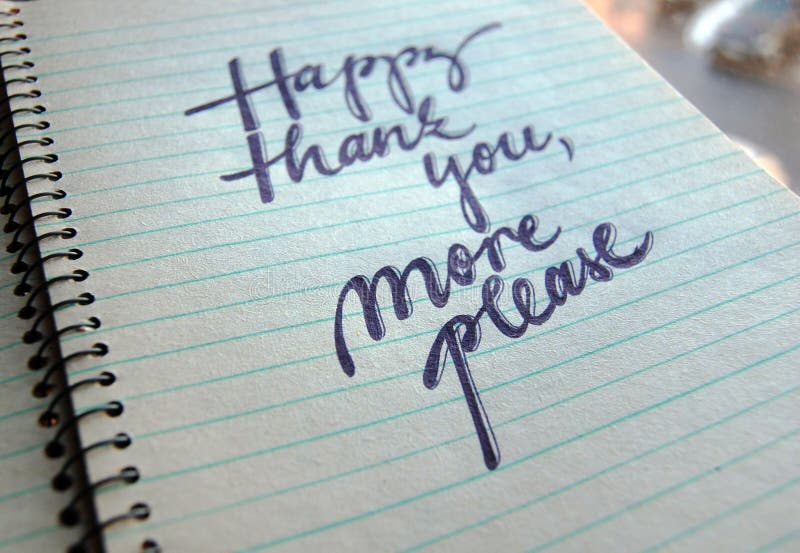 Happy
thank you,
more
please